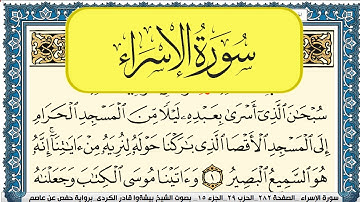 سورة الإسراء
سُبْحَٰنَ ٱلَّذِىٓ أَسْرَىٰ بِعَبْدِهِۦ لَيْلًا مِّنَ ٱلْمَسْجِدِ ٱلْحَرَامِ
إِلَى ٱلْمَسْجِدِ ٱلْأَقْصَا ٱلَّذِى بَٰرَكْنَا حَوْلَهُۥ لِنُرِيَهُۥ مِنْ ءَايَٰتِنَآ ۚ إِنَّهُۥ
هُوَ ٱلسَّمِيعُ ٱلْبَصِيرُ ١ وَءَاتَيْنَا مُوسَى ٱلْكِتَٰبَ وَجَعَلْنَٰهُ
سورة الإسراء . الصفحة ٢٨٢ الحزب ٢٩ . الجزء ١٥ . بصوت الشيخ بيشةوا قادر الكردى . برواية حفص عن عاصم